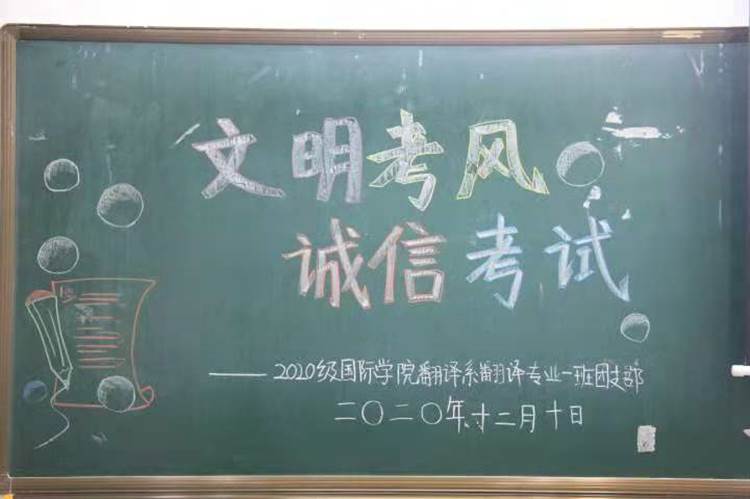 文明考风
诚信考试
——2020级国际学院翻译系翻译专业一班团支部
二〇二〇年十二月十日